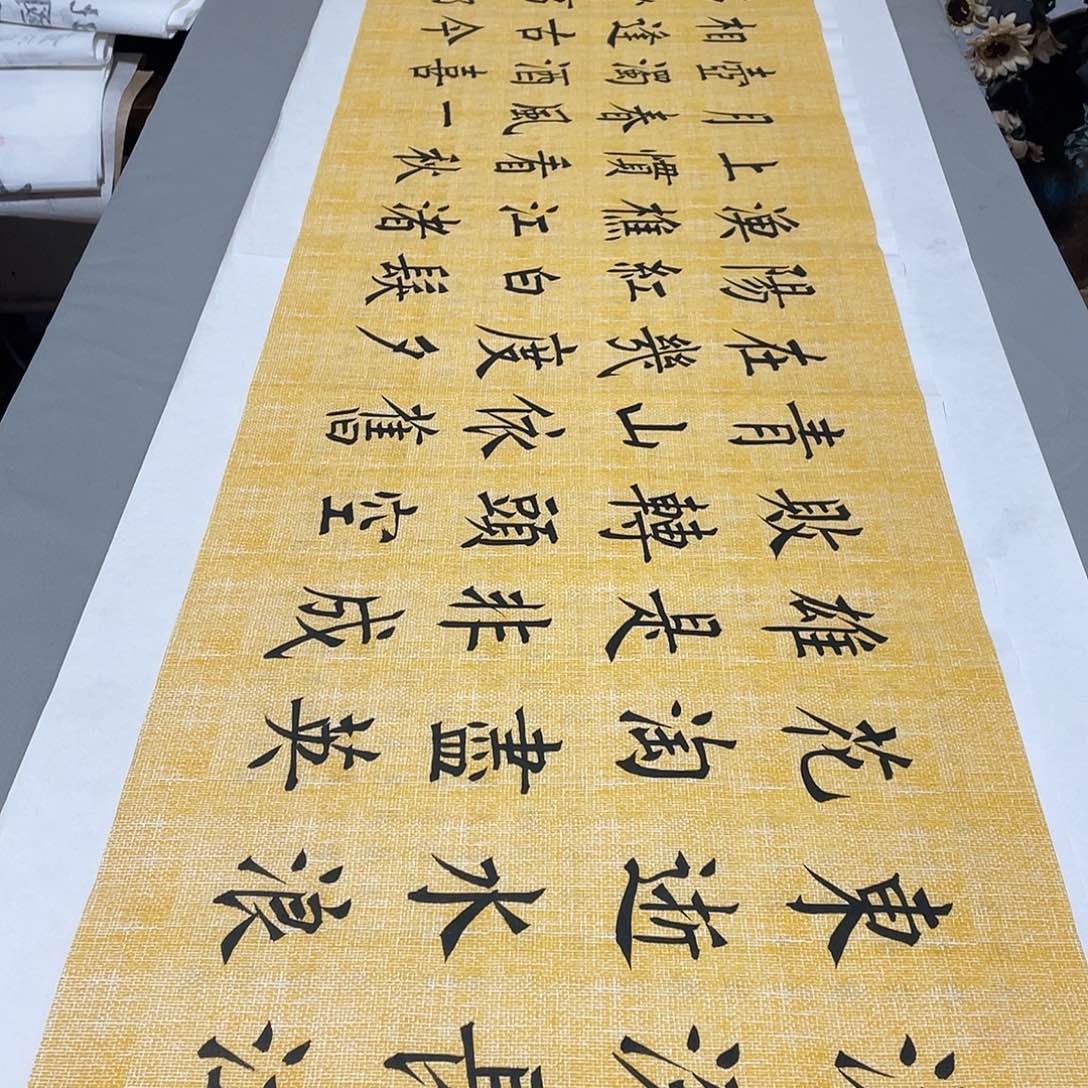 東逝水浪
花淘盡英
雄是非成
敗轉頭空
青山依舊
在幾度夕
陽紅白髮
漁樵江渚
上慣看秋
月春風一
壺濁酒喜
相逢古今